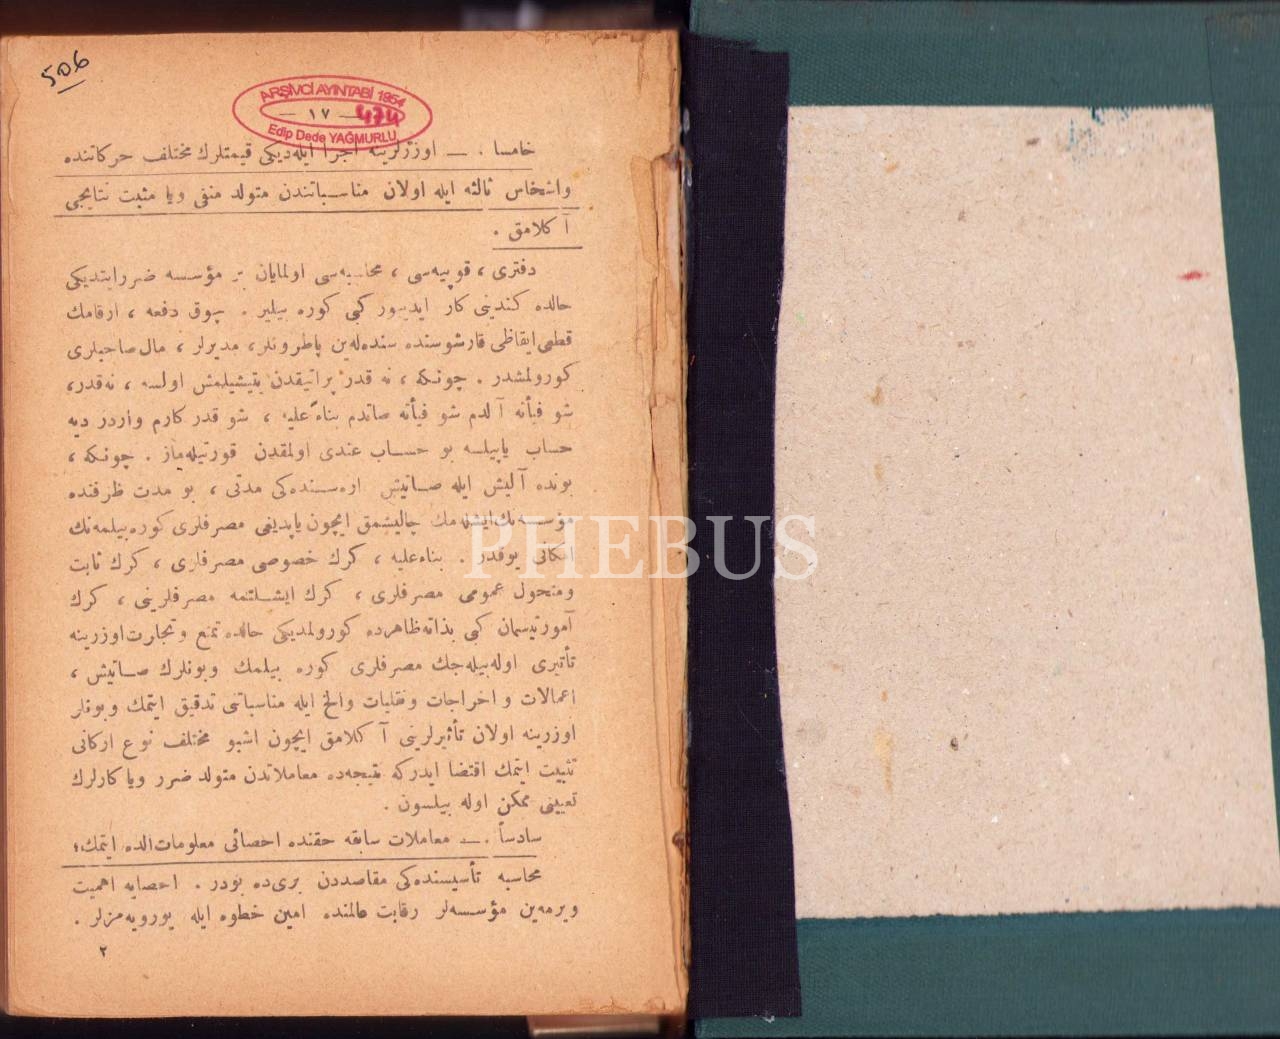 506
ARŞİVCİ AYINTABİ 1954
— ١٧ —
474
Edip Dede YAĞMURLU
خامسا . — اوزرلرينه اجرا ايله‌ديكى قيمتلرك مختلف حركاتنده
واشخاص ثالثه ايله اولان مناسباتندن متولد منفى ويا مثبت نتايجى
آكلامق .
دفترى ، قوپيه‌سى ، محاسبه‌سى اولمايان بر مؤسسه ضررايتديكى
حالده كندينى كار ايدييور كبى كوره بيلير . چوق دفعه ، ارقامك
قطعى ايقاظى قارشوسنده سنده‌له‌ين پاطرونلر، مديرلر ، مال صاحبلرى
كورولمشدر . چونكه ، نه قدر پراتيقدن يتيشيلمش اولسه ، نه‌قدر،
شو فيأته آلدم شو فيأته صاتدم بناءً عليه ، شو قدر كارم واردر ديه
حساب ياپيلسه بو حساب عندى اولمقدن قورتيله‌ماز . چونكه ،
بونده آليش ايله صاتيش اره‌سنده‌كى مدتى ، بو مدت ظرفنده
مؤسسه‌نك ايشله‌مك چاليشمق ايچون ياپديغى مصرفلرى كوره‌بيلمه‌نك
امكانى يوقدر . بناءعليه ، كرك خصوصى مصرفلرى ، كرك ثابت
ومتحول عمومى مصرفلرى ، كرك ايشلتمه مصرفلرينى ، كرك
آمورتيسمان كبى بذاته ظاهرده كورولمديكى حالده تمتع وتجارت‌اوزرينه
تأثيرى اوله‌بيله‌جك مصرفلرى كوره بيلمك وبونلرك صاتيش ،
اعمالات و اخراجات ونقليات والخ ايله مناسباتنى تدقيق ايتمك وبونلر
اوزرينه اولان تأثيرلرينى آكلامق ايچون اشبو مختلف نوع اركانى
تثبيت ايتمك اقتضا ايدركه نتيجه‌ده معاملاتدن متولد ضرر ويا كارلرك
تعيينى ممكن اوله بيلسون .
سادساً . — معاملات سابقه حقنده احصائى معلومات‌الده ايتمك؛
محاسبه تأسيسنده‌كى مقاصددن برى‌ده بودر . احصايه اهميت
ويرمه‌ين مؤسسه‌لر رقابت عالمنده امين خطوه ايله يورويه‌مزلر .
٢
PHEBUS